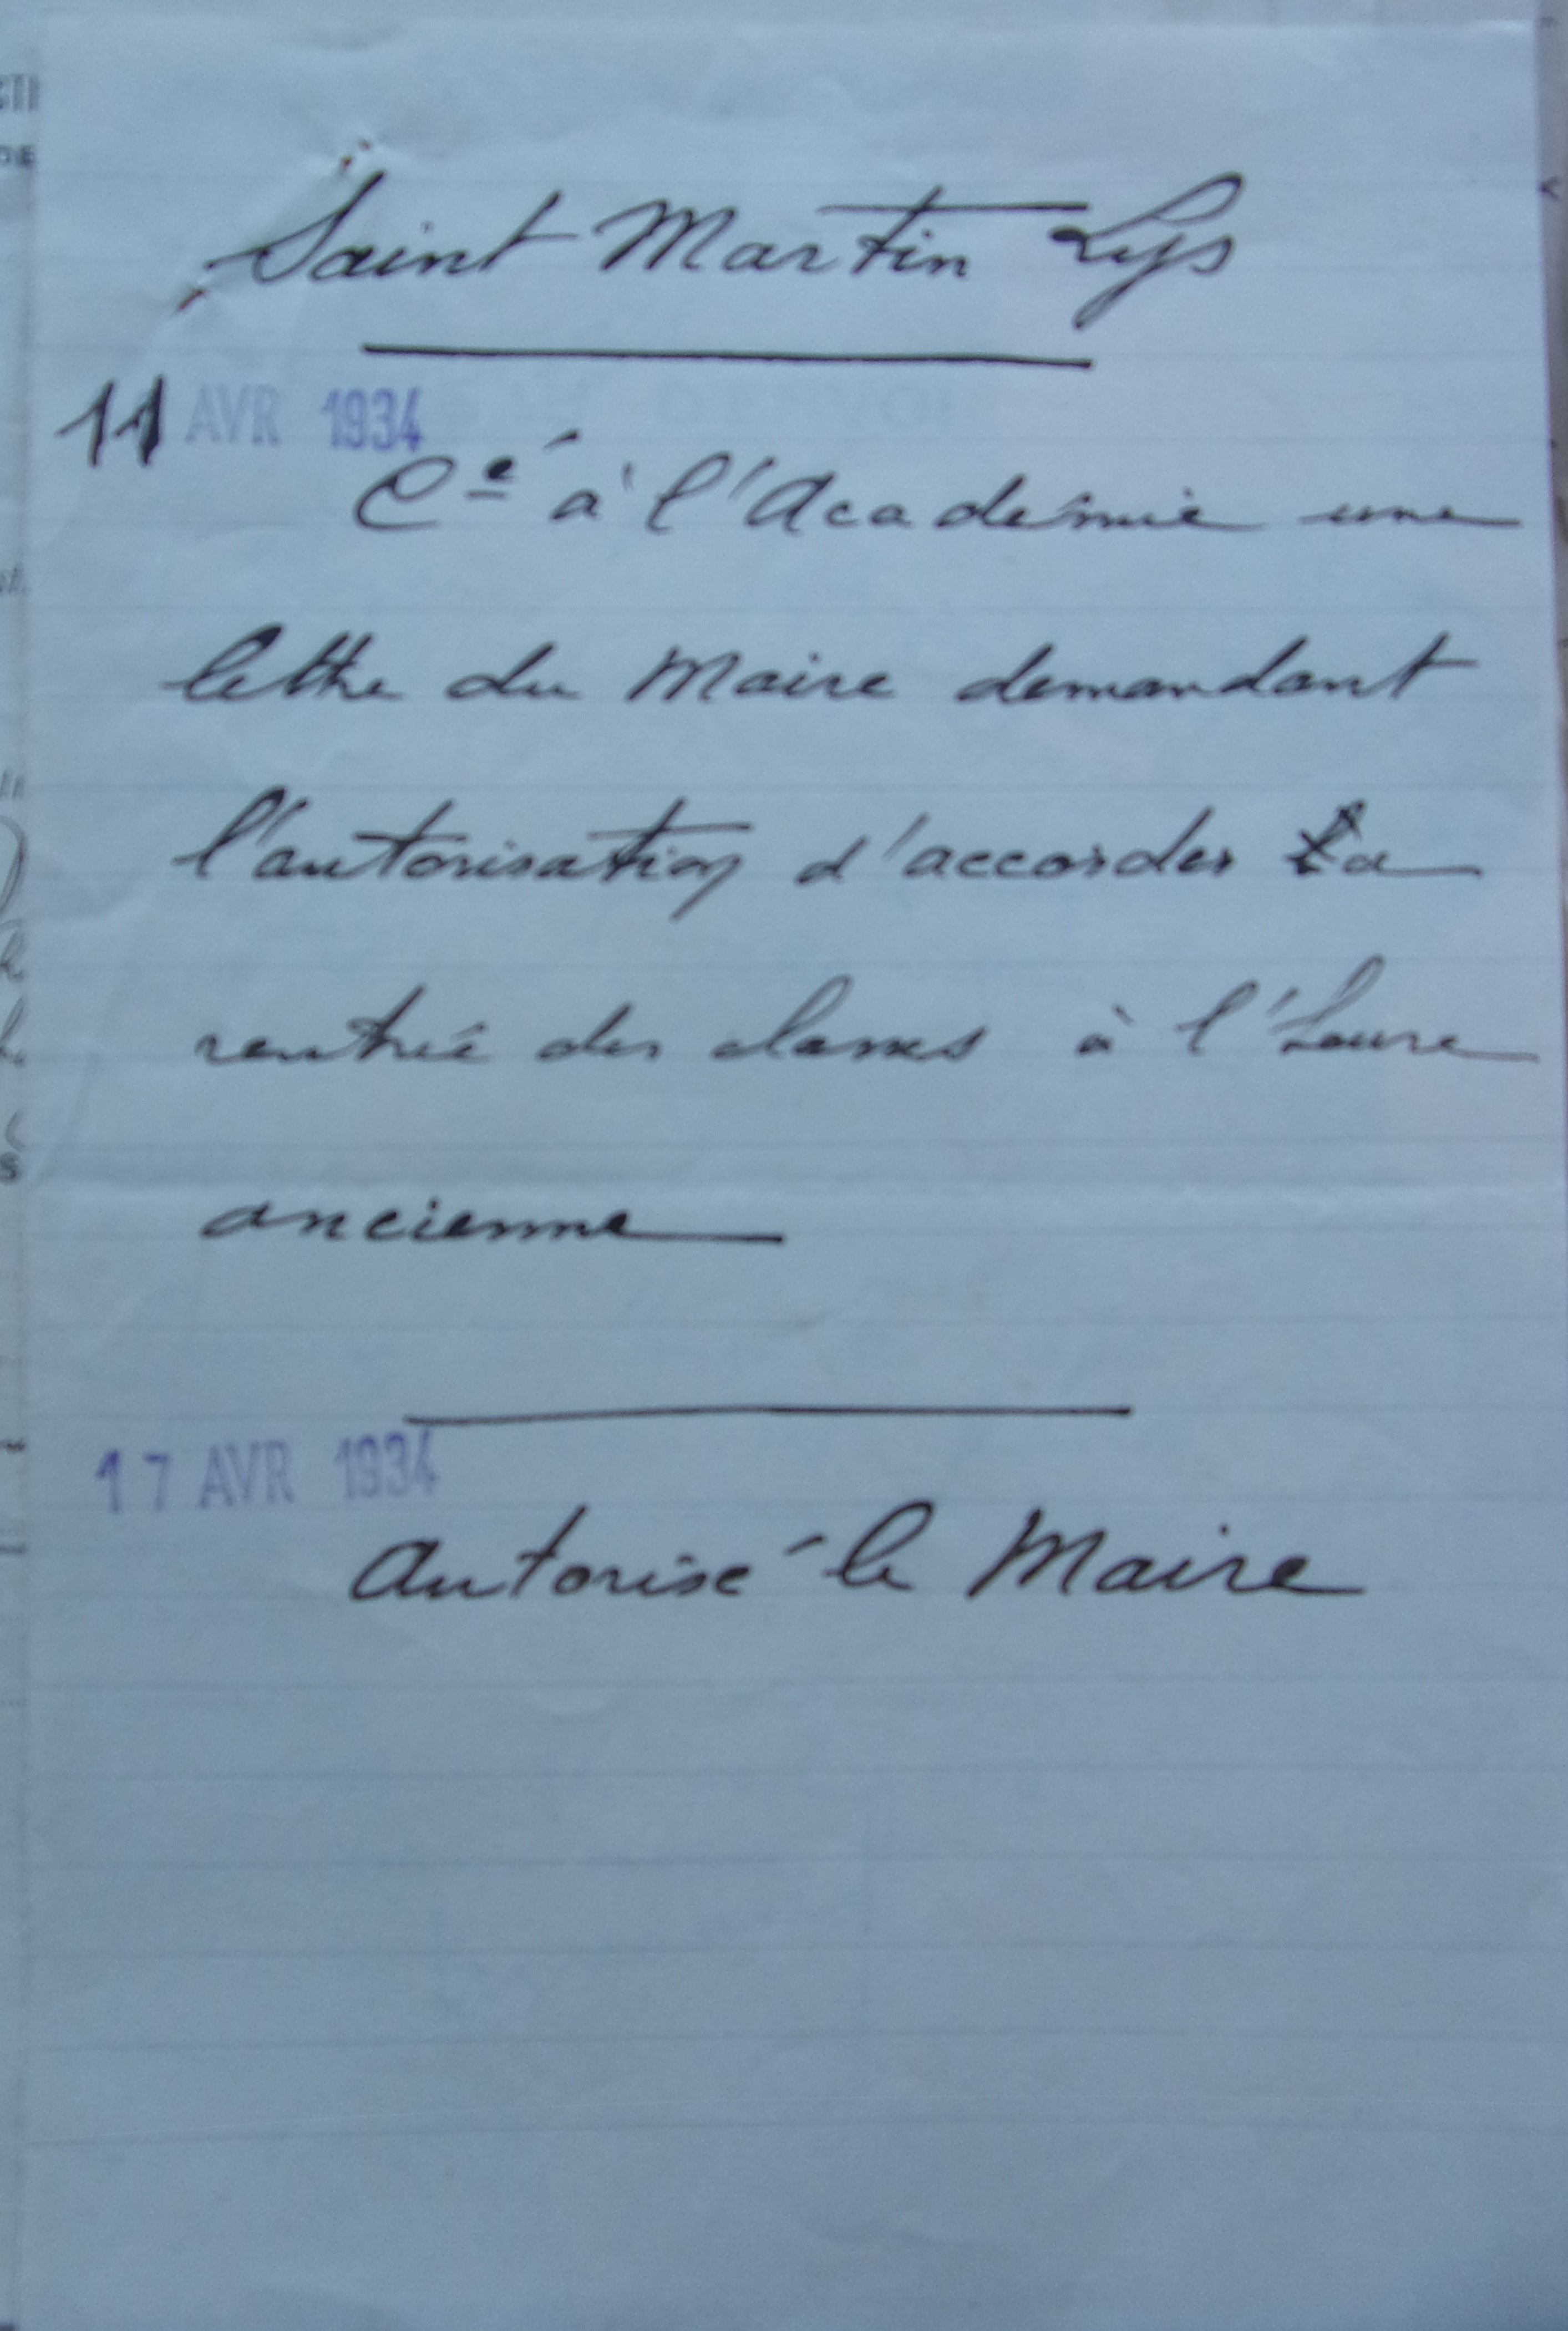 Saint Martin Lys
11 AVR 1934
Cᵉ à l'Académie une
lettre du Maire demandant
l'autorisation d'accorder la
rentrée des classes à l'heure
ancienne
17 AVR 1934
Autorisé le Maire